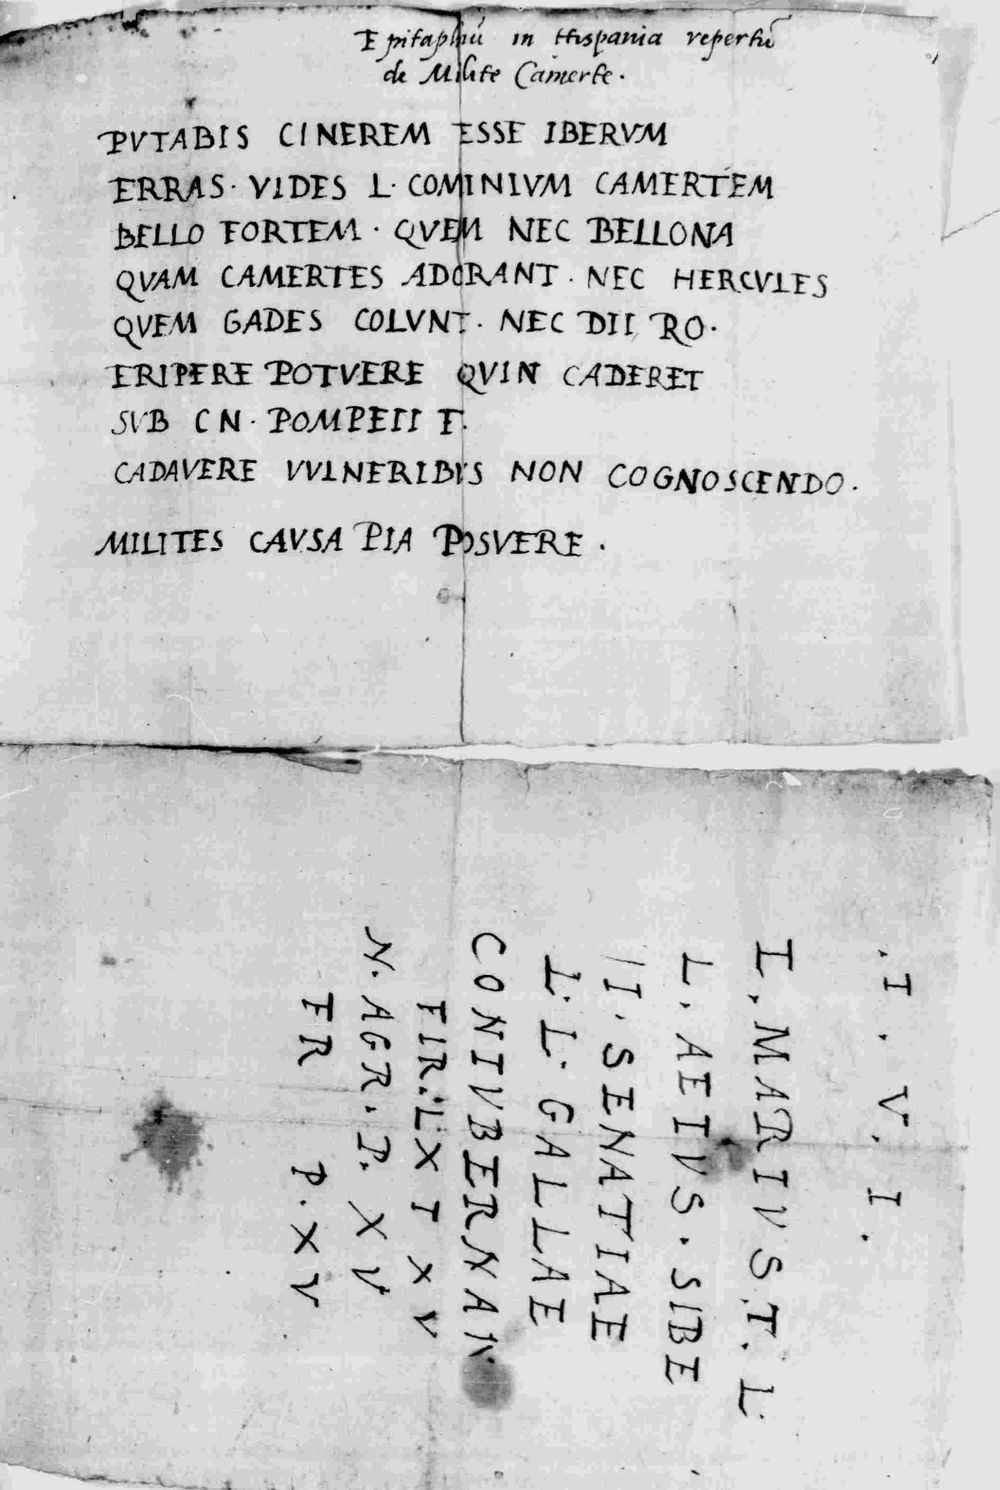 Epitaphiū in Hispania repertū
de Milite Camerte.
PVTABIS CINEREM ESSE IBERVM
ERRAS · VIDES L · COMINIVM CAMERTEM
BELLO FORTEM · QVEM NEC BELLONA
QVAM CAMERTES ADORANT · NEC HERCVLES
QVEM GADES COLVNT · NEC DII RO ·
ERIPERE POTVERE QVIN CADERET
SVB CN · POMPEII F.
CADAVERE VVLNERIBVS NON COGNOSCENDO ·
MILITES CAVSA PIA POSVERE ·
· I · V · I ·
L · MARIVS T · L ·
L · AEIVS · SIBE
II · SENATIAE
L · L · GALLAE
CONTVBERNAN
FIR · LXT XV
N · AGR · P · XV
FR P · XV